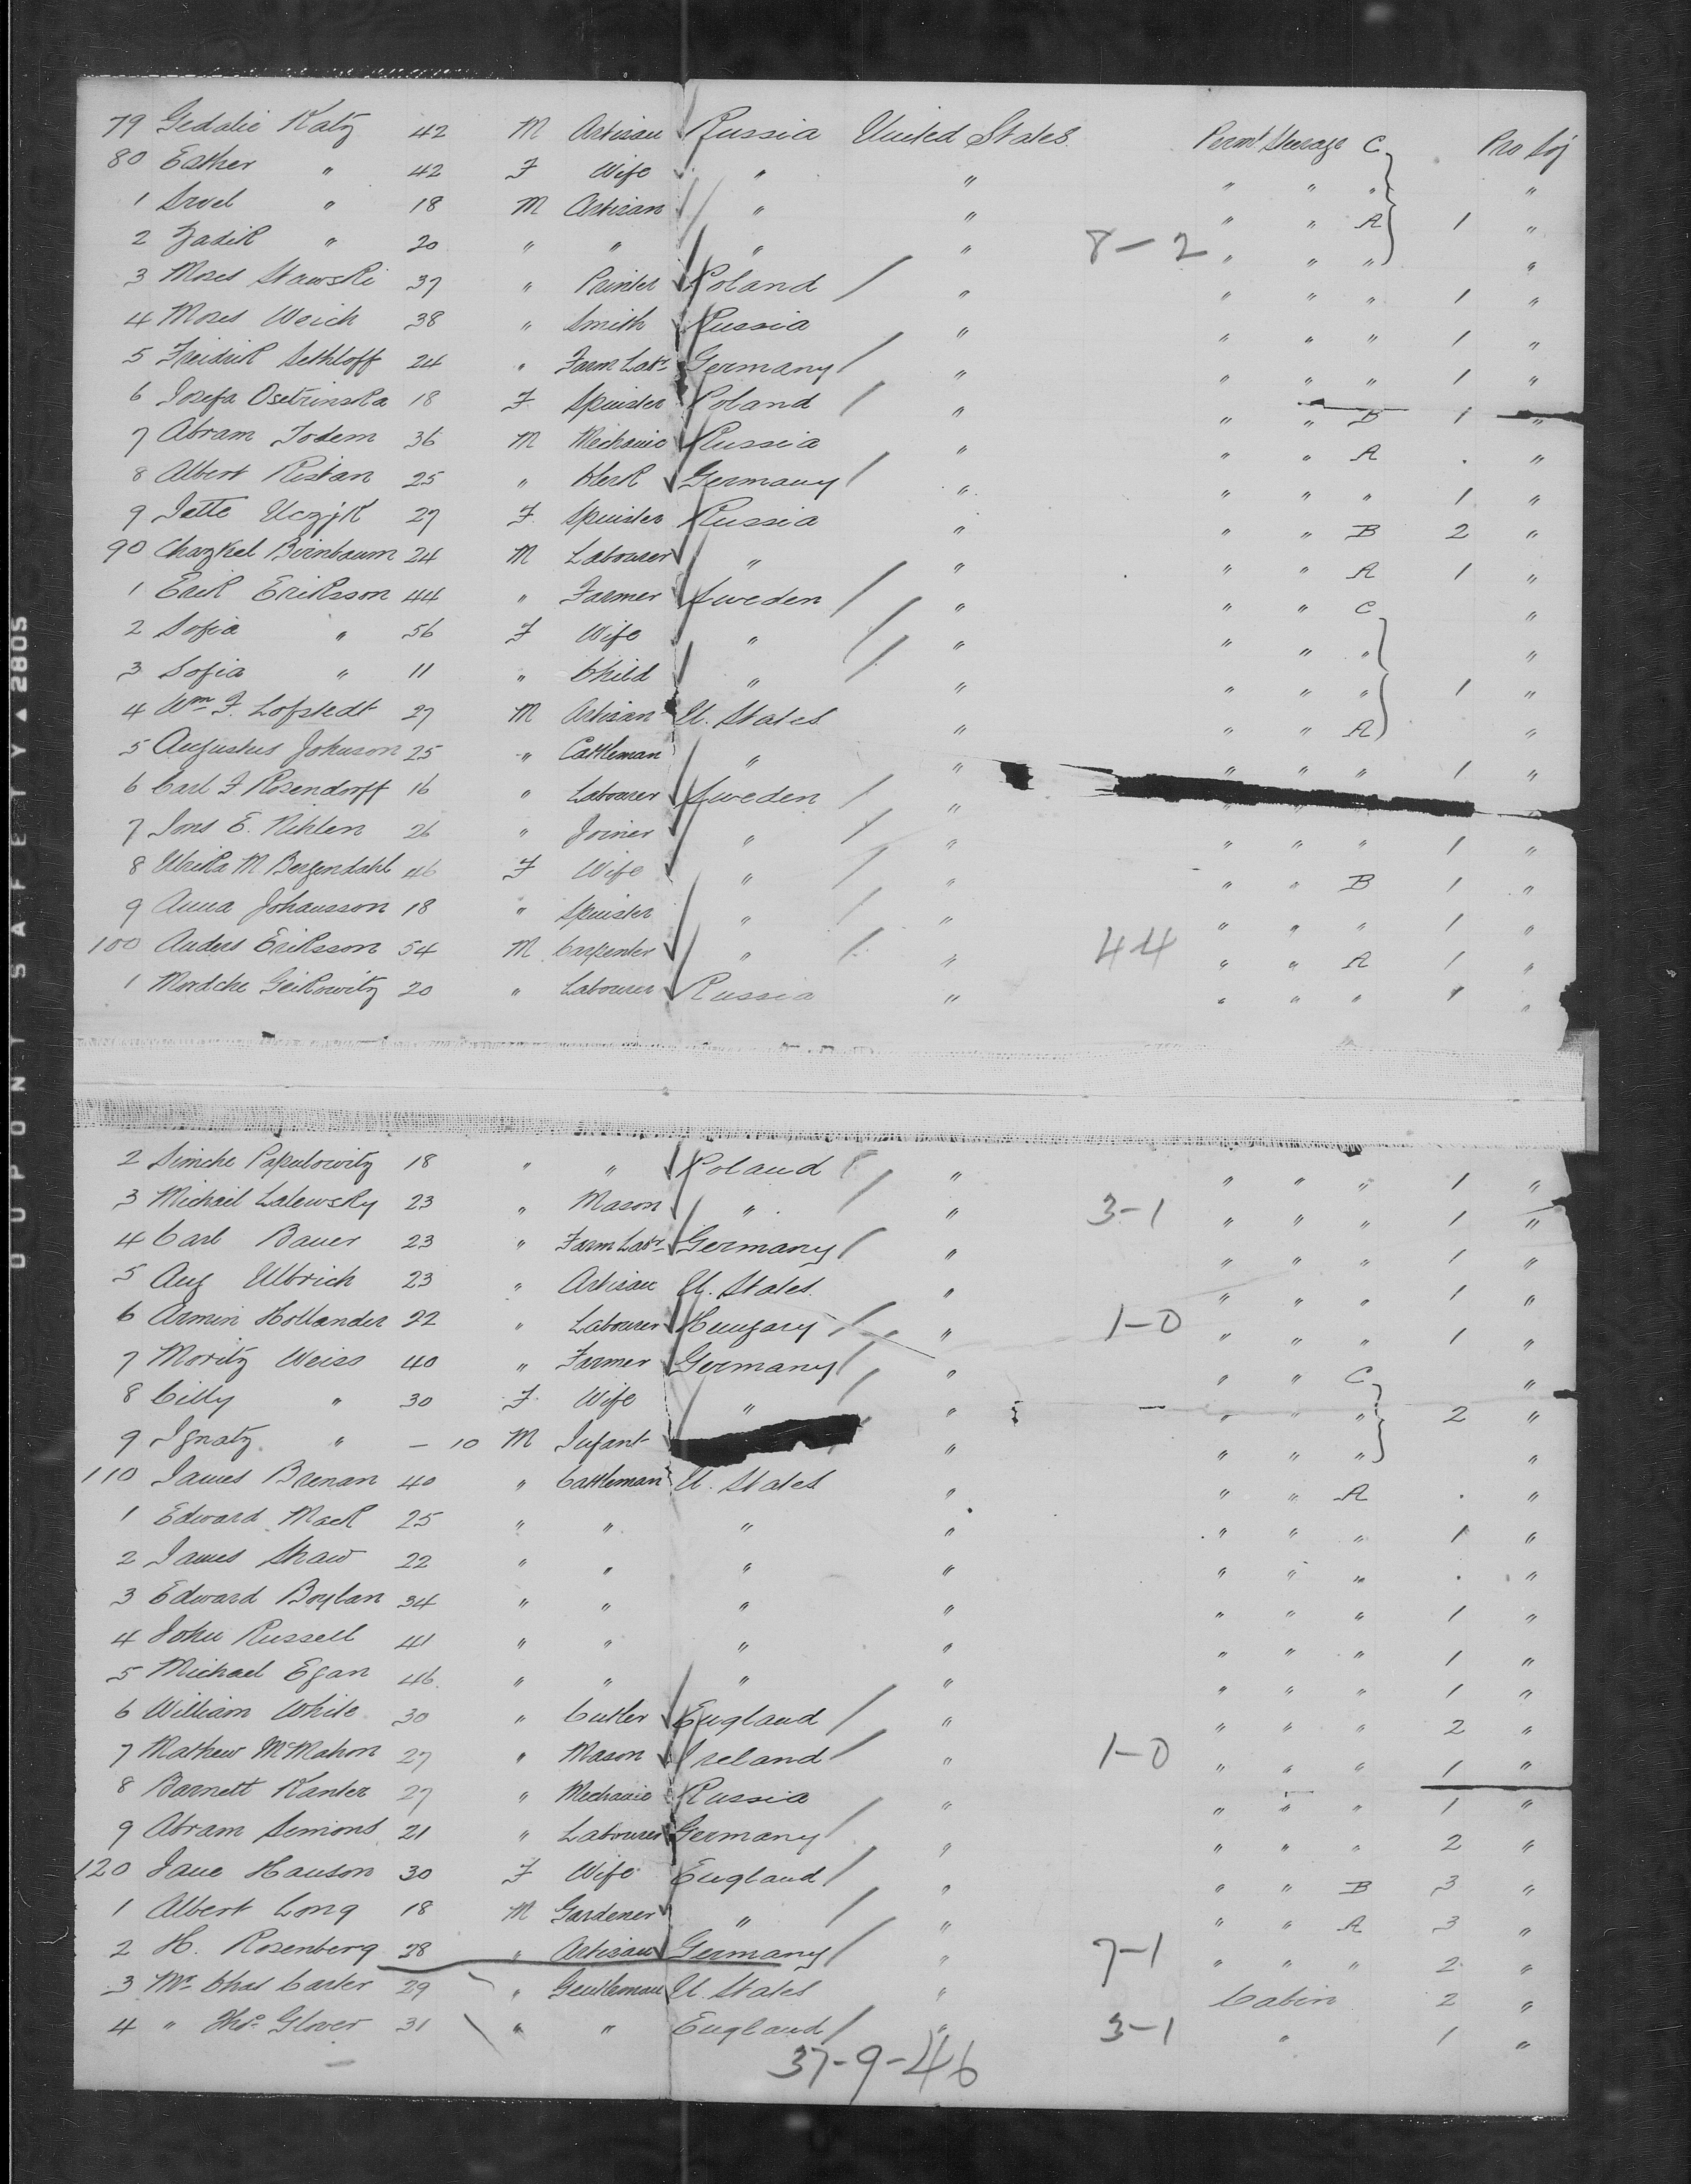 79 Gedalie Katz 42 M Artisan Russia United States Permt Steerage C Pro Soj
80 Esther " 42 F Wife " " " " " "
1 Srvel " 18 M Artisan " " " " A 1 "
2 Zadik " 20 " " " " 8-2 " " " "
3 Moses Stawski 37 " Printer Poland " " " " 1 "
4 Moses Weich 38 " Smith Russia " " " " 1 "
5 Freidrik Sethloff 24 " Farm Labr Germany " " " " 1 "
6 Josefa Osetrinska 18 F Spinster Poland " " " B 1 "
7 Abram Todem 36 M Mechanic Russia " " " A . "
8 Albert Ristan 25 " Clerk Germany " " " " 1 "
9 Jette Uczjk 27 F Spinster Russia " " " B 2 "
90 Chazkel Birnbaum 24 M Labourer " " " " A 1 "
1 Erik Eriksson 44 " Farmer Sweden " " " C "
2 Sofia " 56 F Wife " " " " " "
3 Sofia " 11 " Child " " " " " 1 "
4 Wm F. Lofstedt 27 M Artisan U. States " " " A "
5 Augustus Johnson 25 " Cattleman " " " " " 1 "
6 Carl F Rosendorff 16 " Labourer Sweden " " "
7 Jons E. Nihlen 26 " Joiner " " " " " 1 "
8 Ulrika M Bergendahl 46 F Wife " " " " B 1 "
9 Anna Johansson 18 " Spinster " " " " " 1 "
100 Anders Eriksson 54 M Carpenter " " 44 " " A 1 "
1 Mordche Geikowitz 20 " Labourer Russia " " " " 1 "
2 Simche Papulowitz 18 " " Poland " " " " 1 "
3 Michail Lalewsky 23 " Mason " " 3-1 " " " 1 "
4 Carl Bauer 23 " Farm Labr Germany " " " " 1 "
5 Aug Ulbrich 23 " Artisan U. States " " " " 1 "
6 Armin Hollander 22 " Labourer Hungary " 1-0 " " " 1 "
7 Moritz Weiss 40 " Farmer Germany " " " C "
8 Cilly " 30 F Wife " " " " " 2 "
9 Ignatz " - 10 M Infant " " " " "
110 James Brenan 40 " Cattleman U. States " " " A . "
1 Edward Mack 25 " " " " " " " 1 "
2 James Shaw 22 " " " " " " " . "
3 Edward Boylan 34 " " " " " " " 1 "
4 John Russell 41 " " " " " " " 1 "
5 Michael Egan 46 " " " " " " " 1 "
6 William White 30 " Cutler England " " " " 2 "
7 Mathew McMahon 27 " Mason Ireland " 1-0 " " " 1 "
8 Barnett Kanter 27 " Mechanic Russia " " " " 1 "
9 Abram Simons 21 " Labourer Germany " " " " 2 "
120 Jane Hanson 30 F Wife England " " " B 3 "
1 Albert Long 18 M Gardener " " " " A 3 "
2 H. Rosenberg 28 " Artisan Germany " 7-1 " " " 2 "
3 Mr Chas Carter 29 " Gentleman U. States " Cabin 2 "
4 " Thos Glover 31 " " England " 3-1 " 1 "
37-9-46
DUPONT SAFETY ▲ 2805